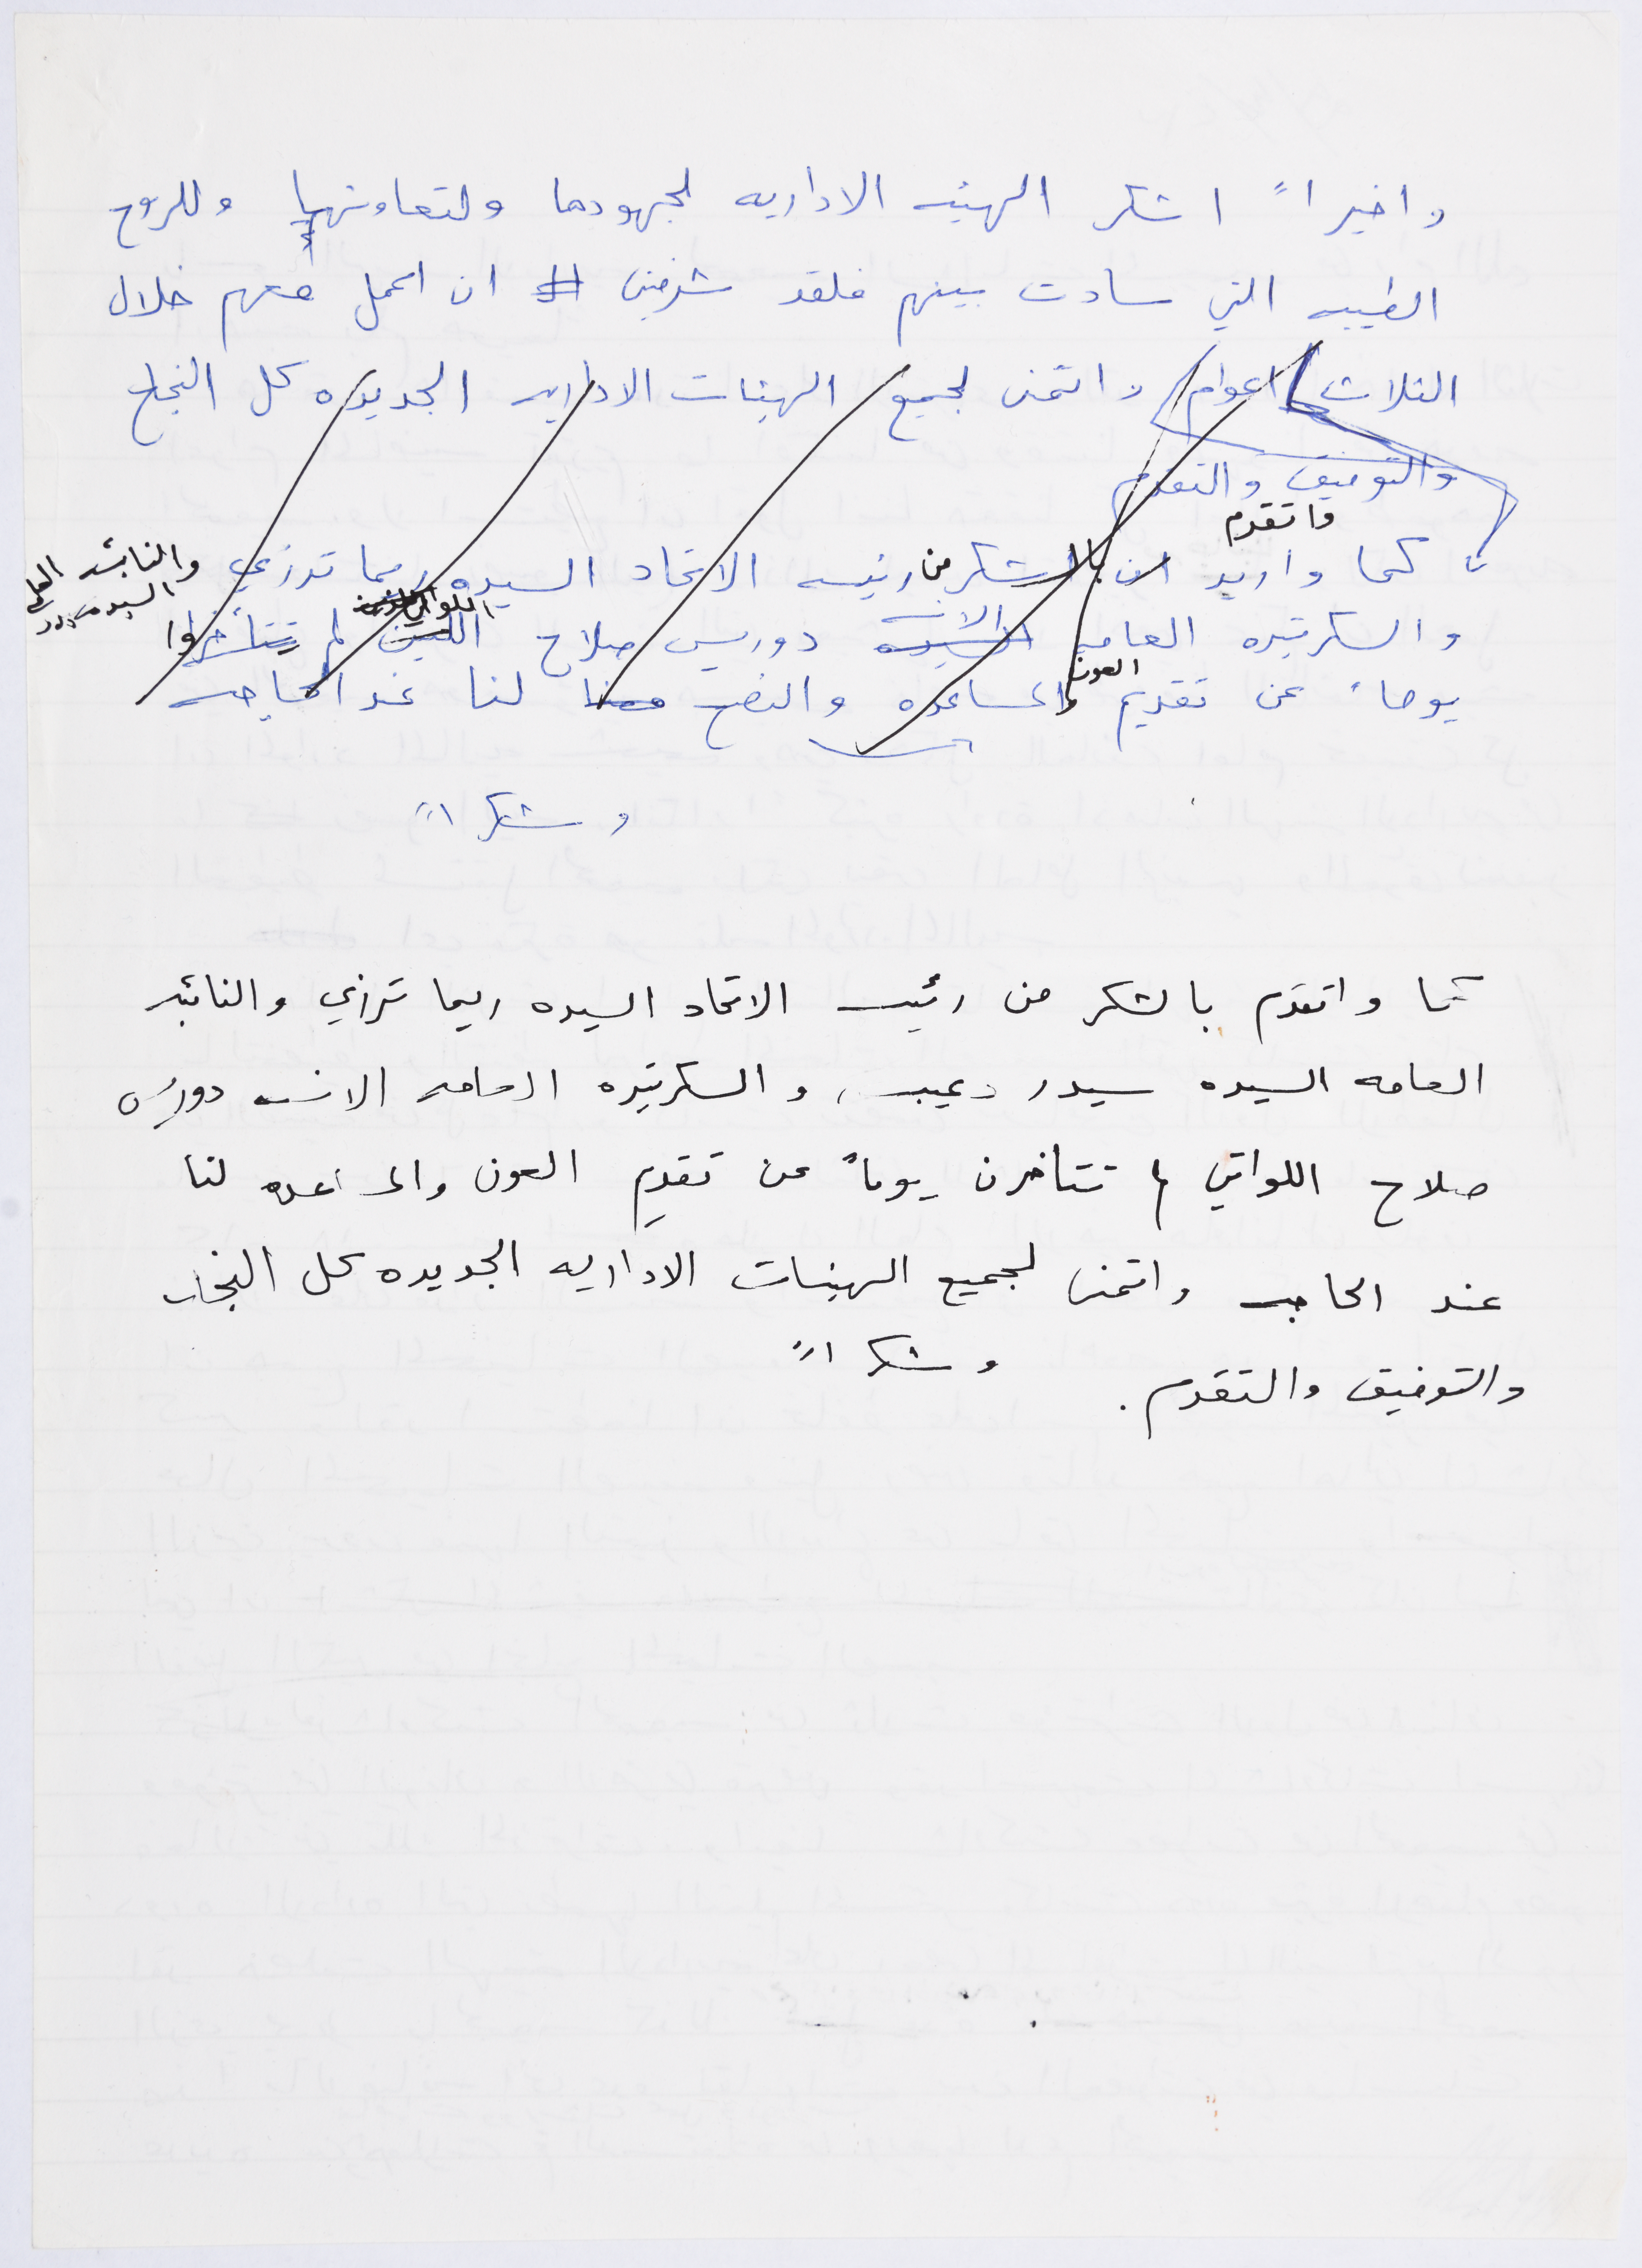 واخيراً اشكر الهيئه الاداريه لجهودها ولتعاونها وللروح
الطيبه التي سادت بينهم فلقد شرفني ان اعمل معهم خلال
الثلاث اعوام واتمنى لجميع الهيئات الاداريه الجديده كل النجاح
والتوفيق والتقدم
واتقدم
كما واريد ان بالشكر من رئيسه الاتحاد السيده ريما ترزي والنائبه
السيده
اللواتي
الانسه
والسكرتيره العامه السيده دوريس صلاح اللتين لم يتأخروا
العون
يوماً عن تقديم والمساعده والنصح لنا عند الحاجه
وشكراً
كما واتقدم بالشكر من رئيسه الاتحاد السيده ريما ترزي والنائبه
العامه السيده سيدر دعيبس، والسكرتيره العامه الانسه دوريس
صلاح اللواتي لم تتاخرن يوماً عن تقديم العون والمساعده لنا
عند الحاجه واتمنى لجميع الهيئات الاداريه الجديده كل النجاح
والتوفيق والتقدم.
وشكراً